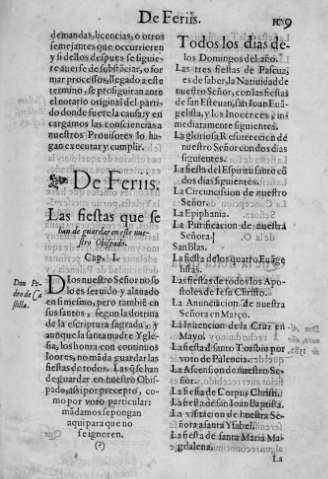 De Feriis.
109
demandas, licencias, o otros
semejantes que occurrieren
y si dellos despues se siguie-
re auerse de substãciar, o for
mar processos, llegado a este
termino, se prosiguiran ante
el notario original del parti-
do donde fuere la causa; y en
cargamos las consciencias a
nuestros Prouisores lo ha-
gan executar y cumplir.
De Feriis.
Las fiestas que se
han de guardar en este nue-
stro Obispado.
Cap. I.
Don Pe-
dro de Ca
stilla.
Dios nuestro Señor no so
lo es seruido y alauado
en si mesmo, pero tambiẽ en
sus santos, segun la dotrina
de la escriptura sagrada, y
aunque la santa madre Ygle-
sia, los honra con continuos
loores, no mãda guardar las
fiestas de todos. Las q̃ se han
de guardar en nuestro Obis-
pado, assi por precepto, co-
mo por voto particular:
mãdamos se pongan
aqui para que no
se ignoren.
(?)
Todos los dias de-
los Domingos del año.
Las tres fiestas de Pascua,
es de saber, la Natiuidad de
nuestro Señor, con las fiestas
de san Esteuan, san Iuan Euã-
gelista, y los Inocentes, in-
mediatamente siguientes.
La gloriosa Resurreccion de
nuestro Señor con dos dias
siguientes.
La fiesta del Espiritu santo cõ
dos dias siguientes.
La Circuncision de nuestro
Señor.
La Epiphania.
La Purificacion de nuestra
Señora.
San Blas.
La fiesta de los quatro Euãge
listas.
Las fiestas de todos los Apo-
stoles de Iesu Christo.
La Anunciacion de nuestra
Señora en Março.
La Inuencion de la Cruz en
Mayo.
La fiesta d santo Toribio por
voto de Palencia.
La Ascension de nuestro Se-
ñor.
La fiesta de Corpus Christi.
La fiesta de san Ioan Baptista.
La visitacion de nuestra Se-
ñora a santa Ysabel.
La fiesta de santa Maria Ma-
gdalena.
La